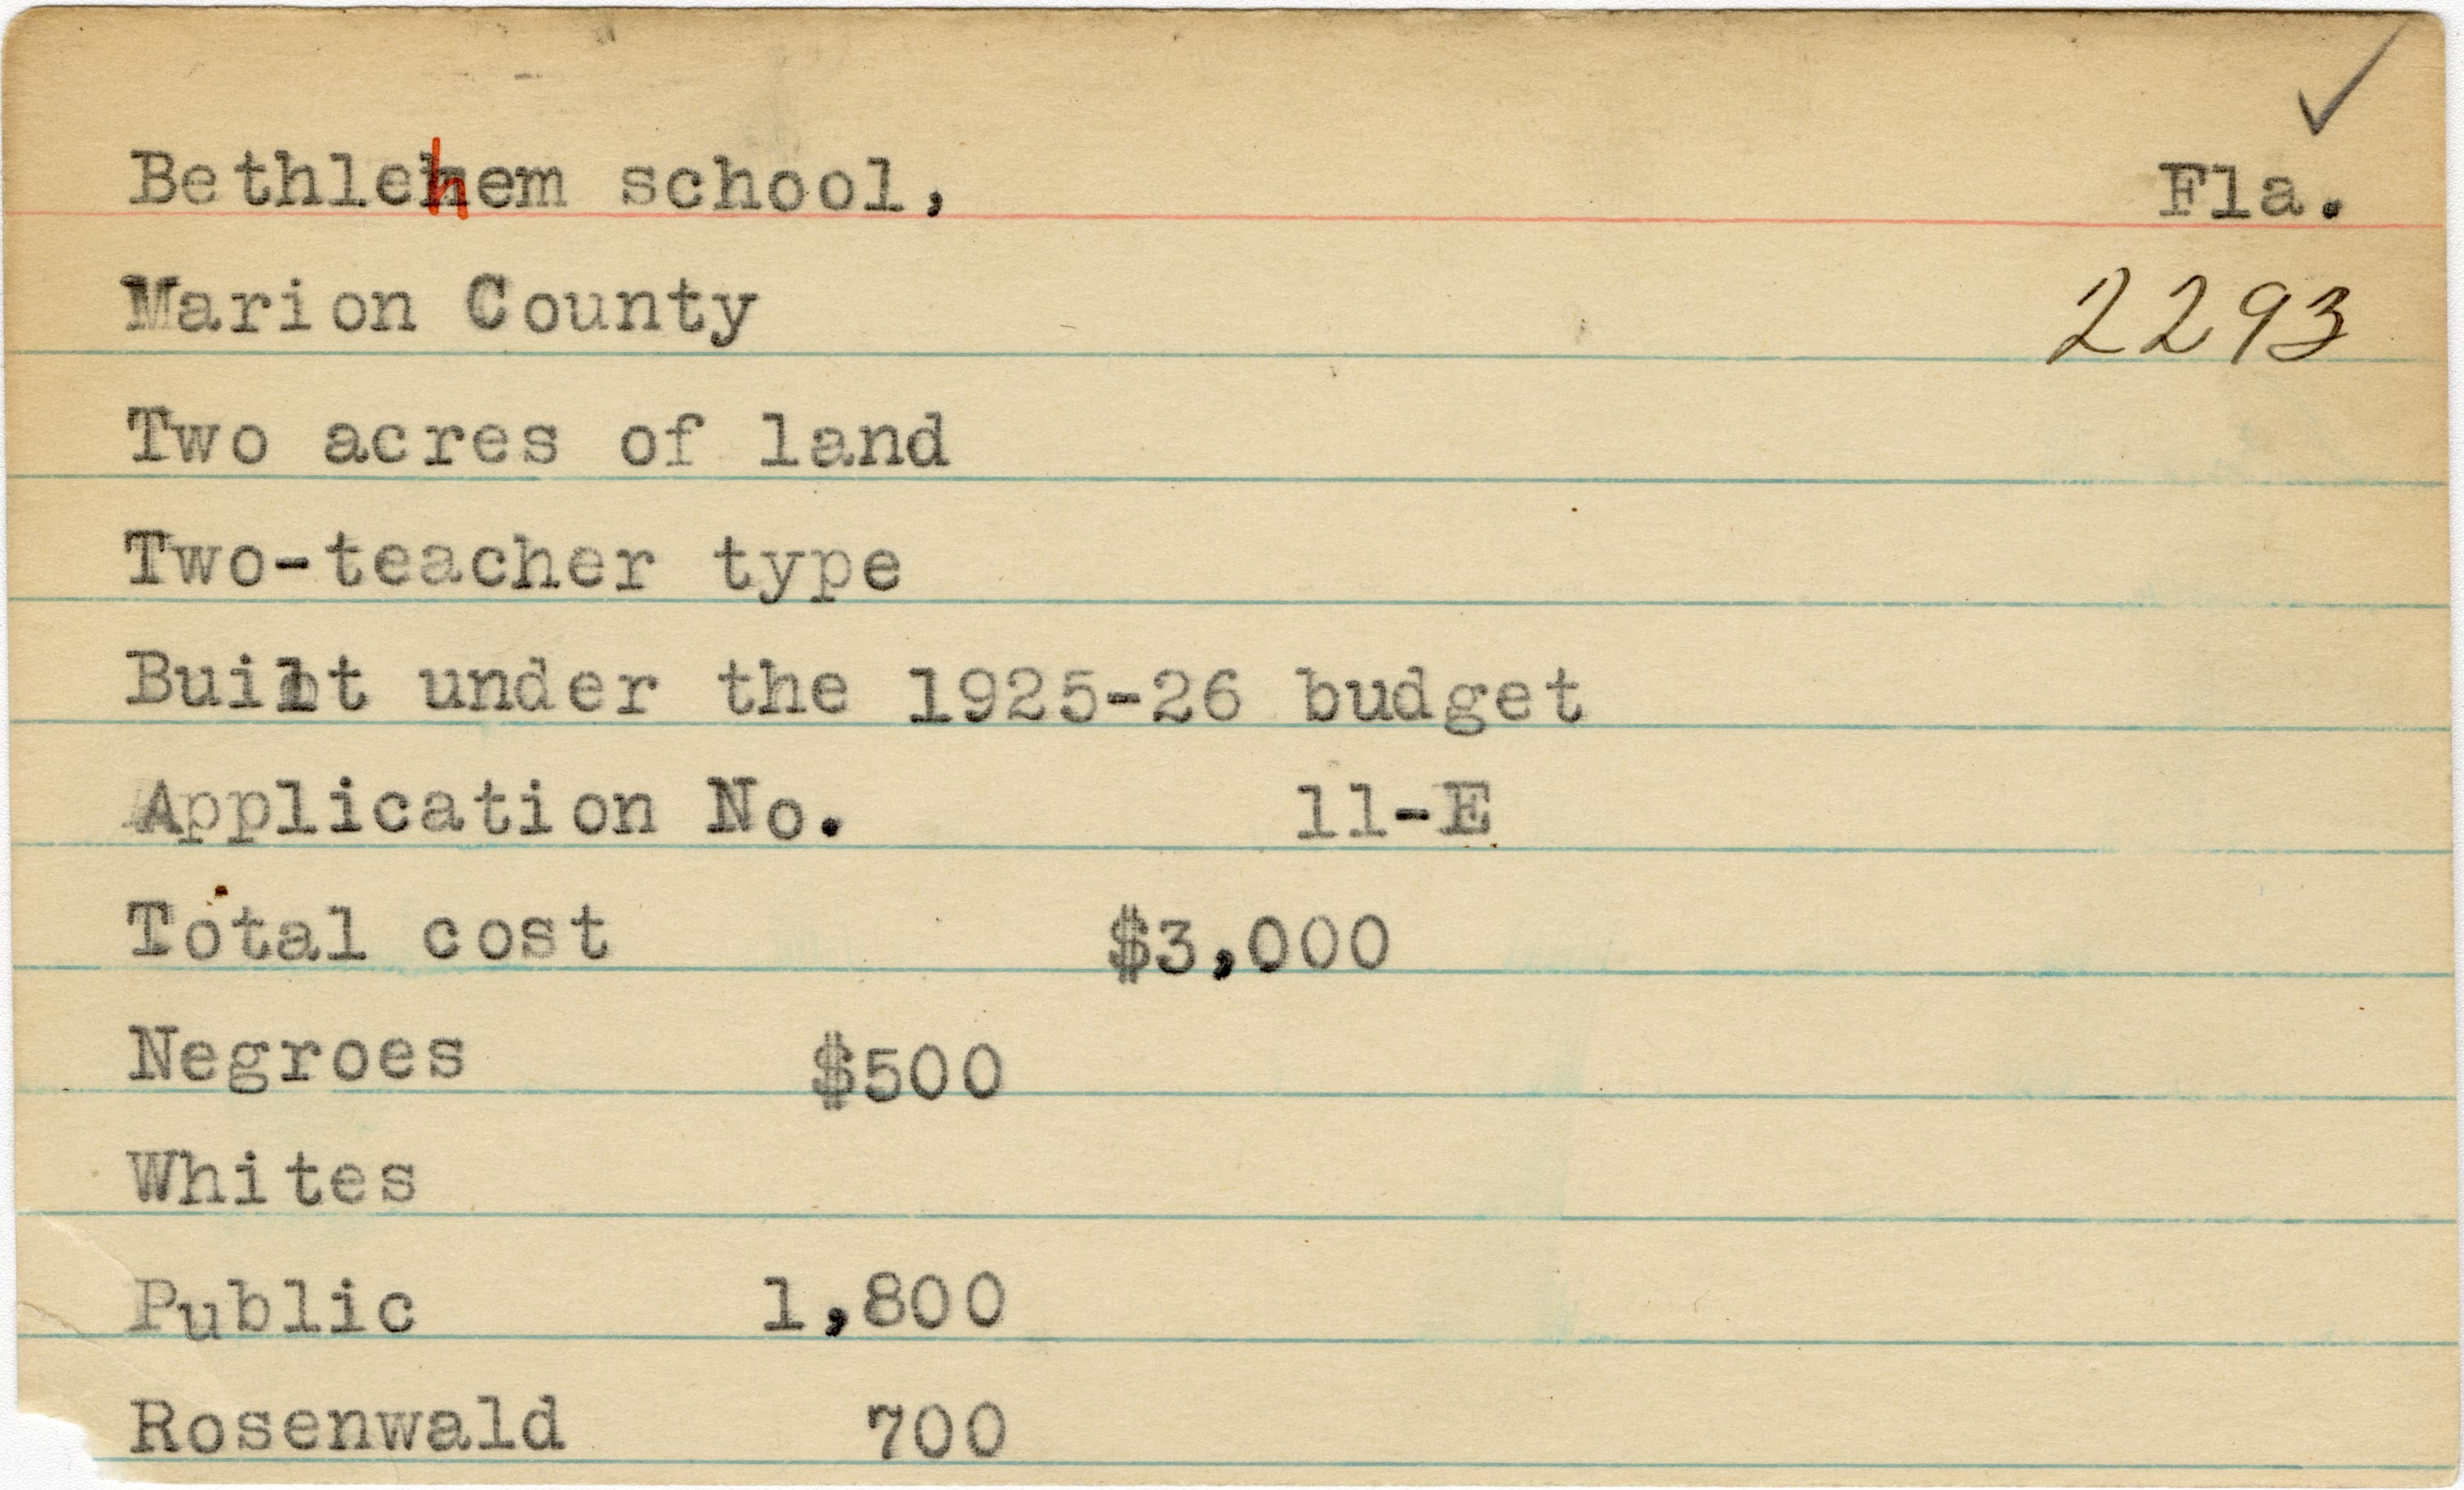 ✓
Bethlehem school, Fla.
Marion County 2293
Two acres of land
Two-teacher type
Built under the 1925-26 budget
Application No. 11-E
Total cost $3,000
Negroes $500
Whites
Public 1,800
Rosenwald 700